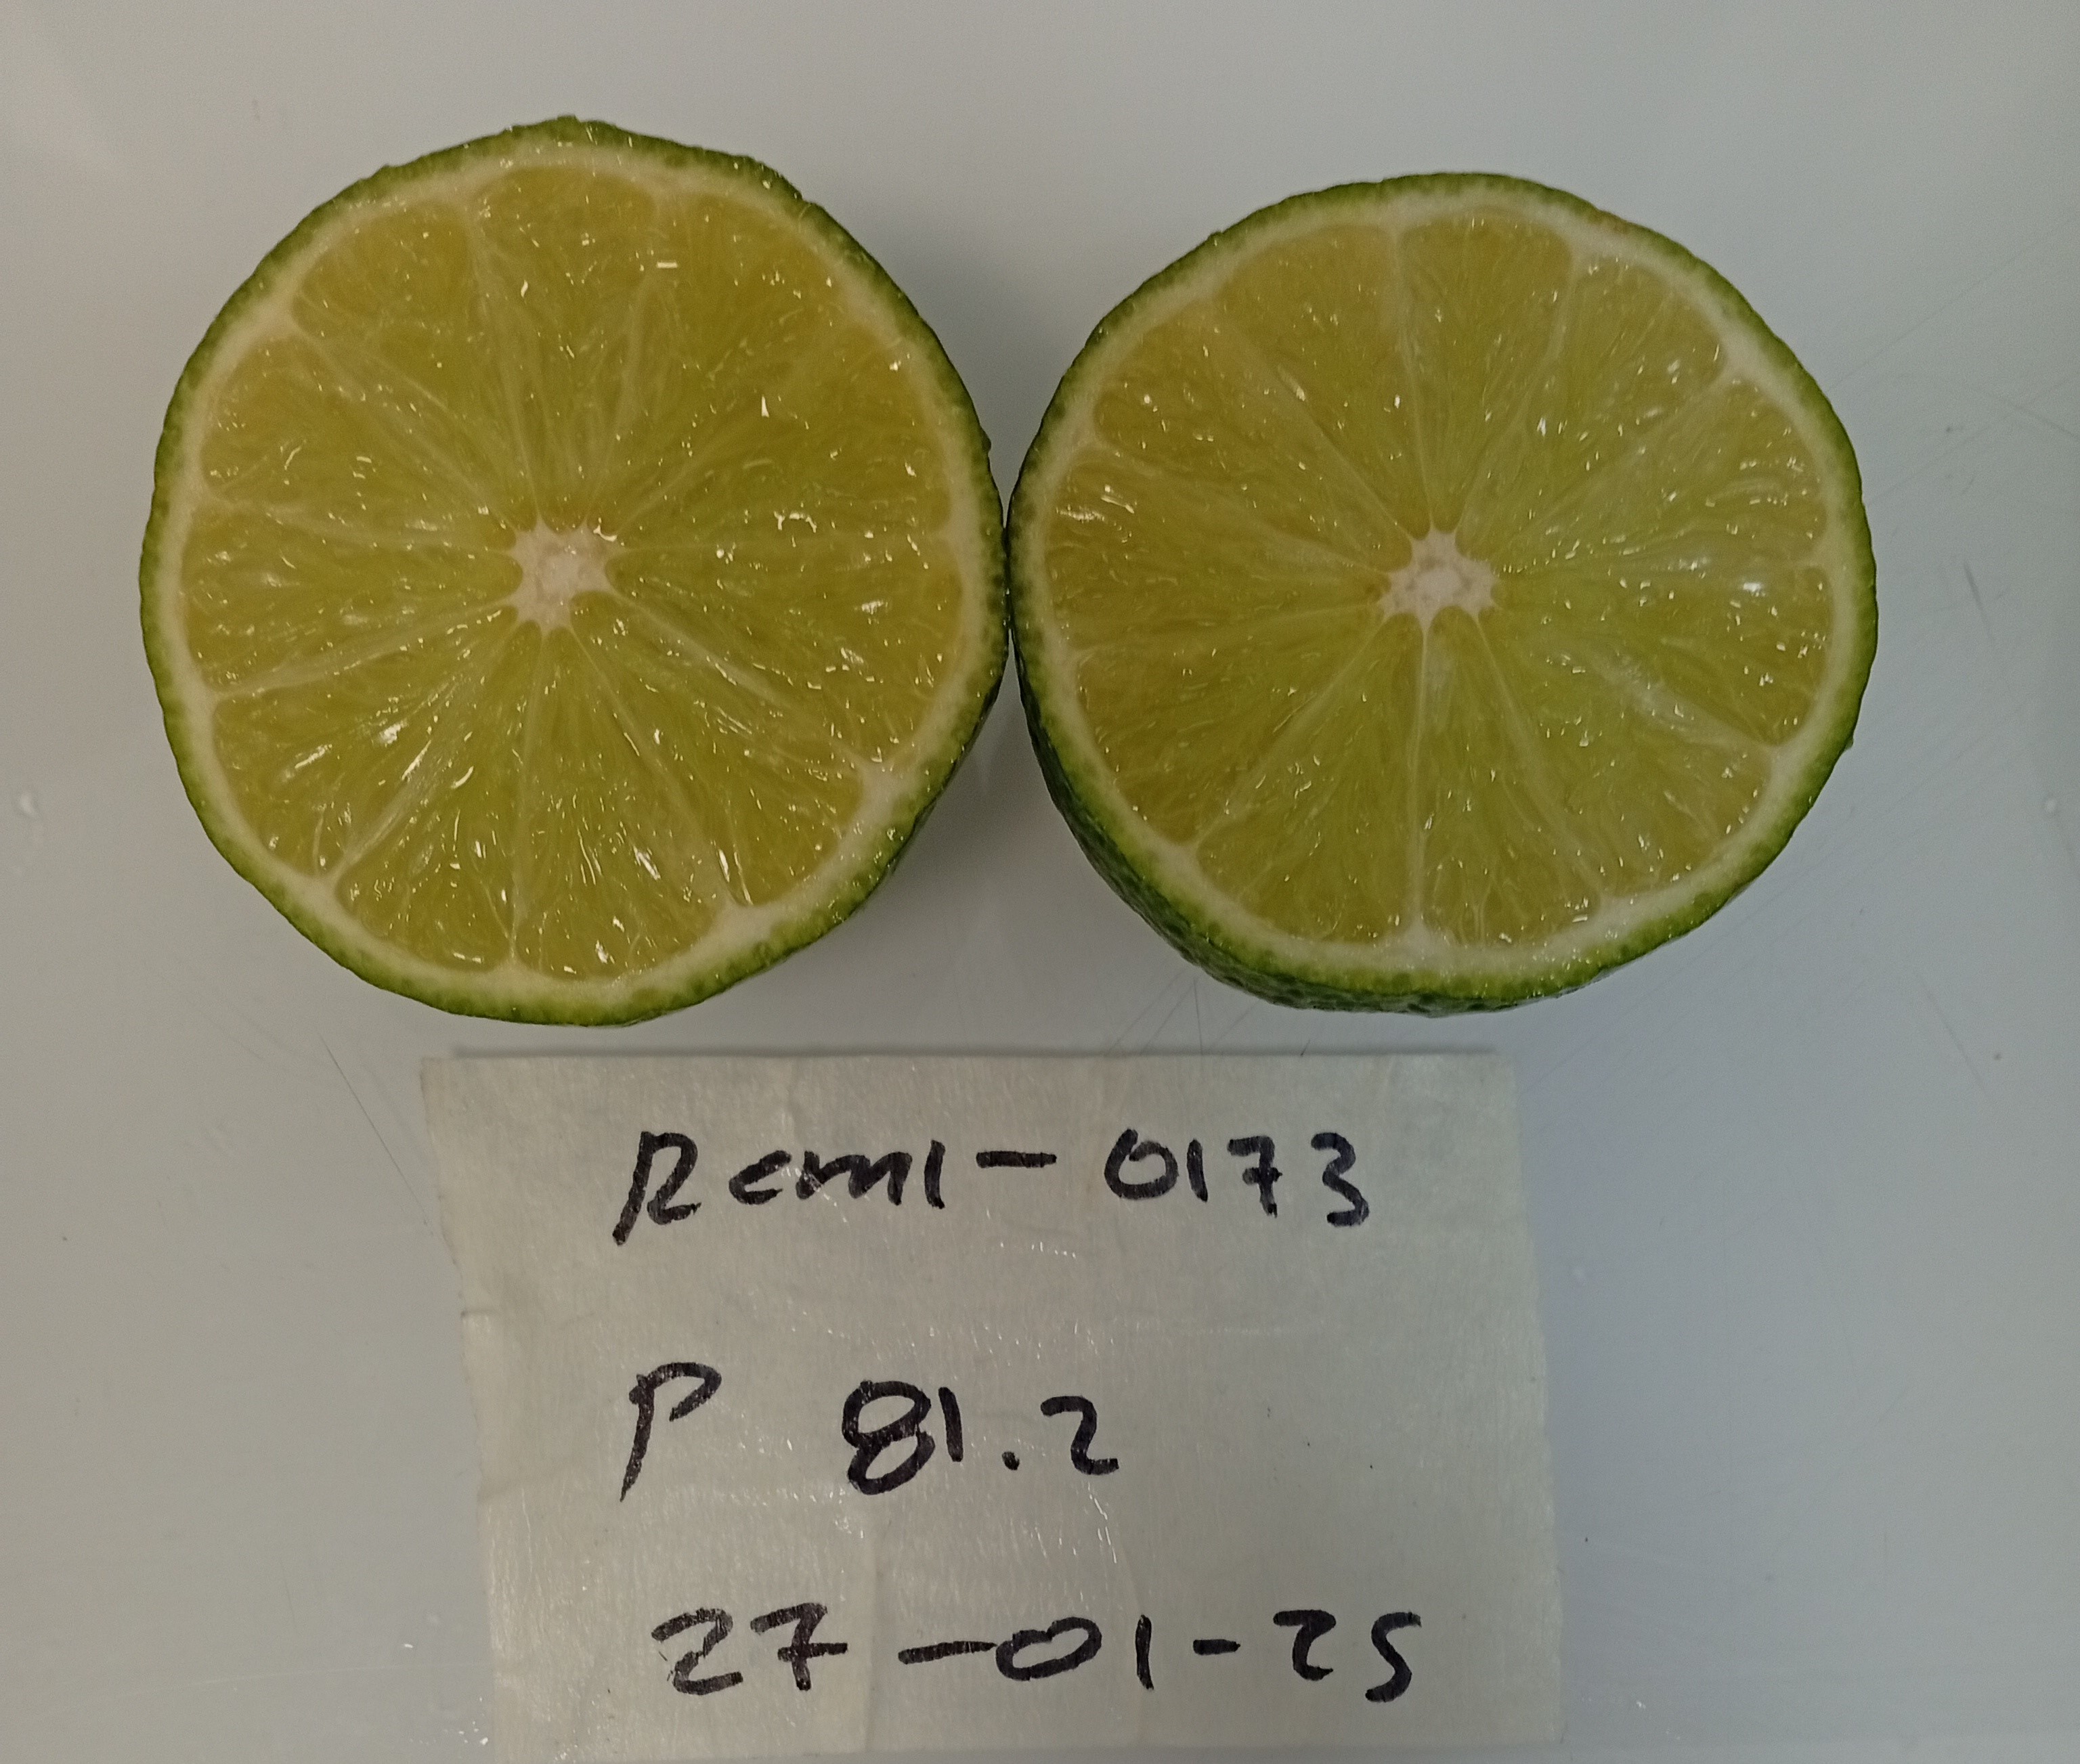 Rcm1-0173
P 81.2
27-01-25